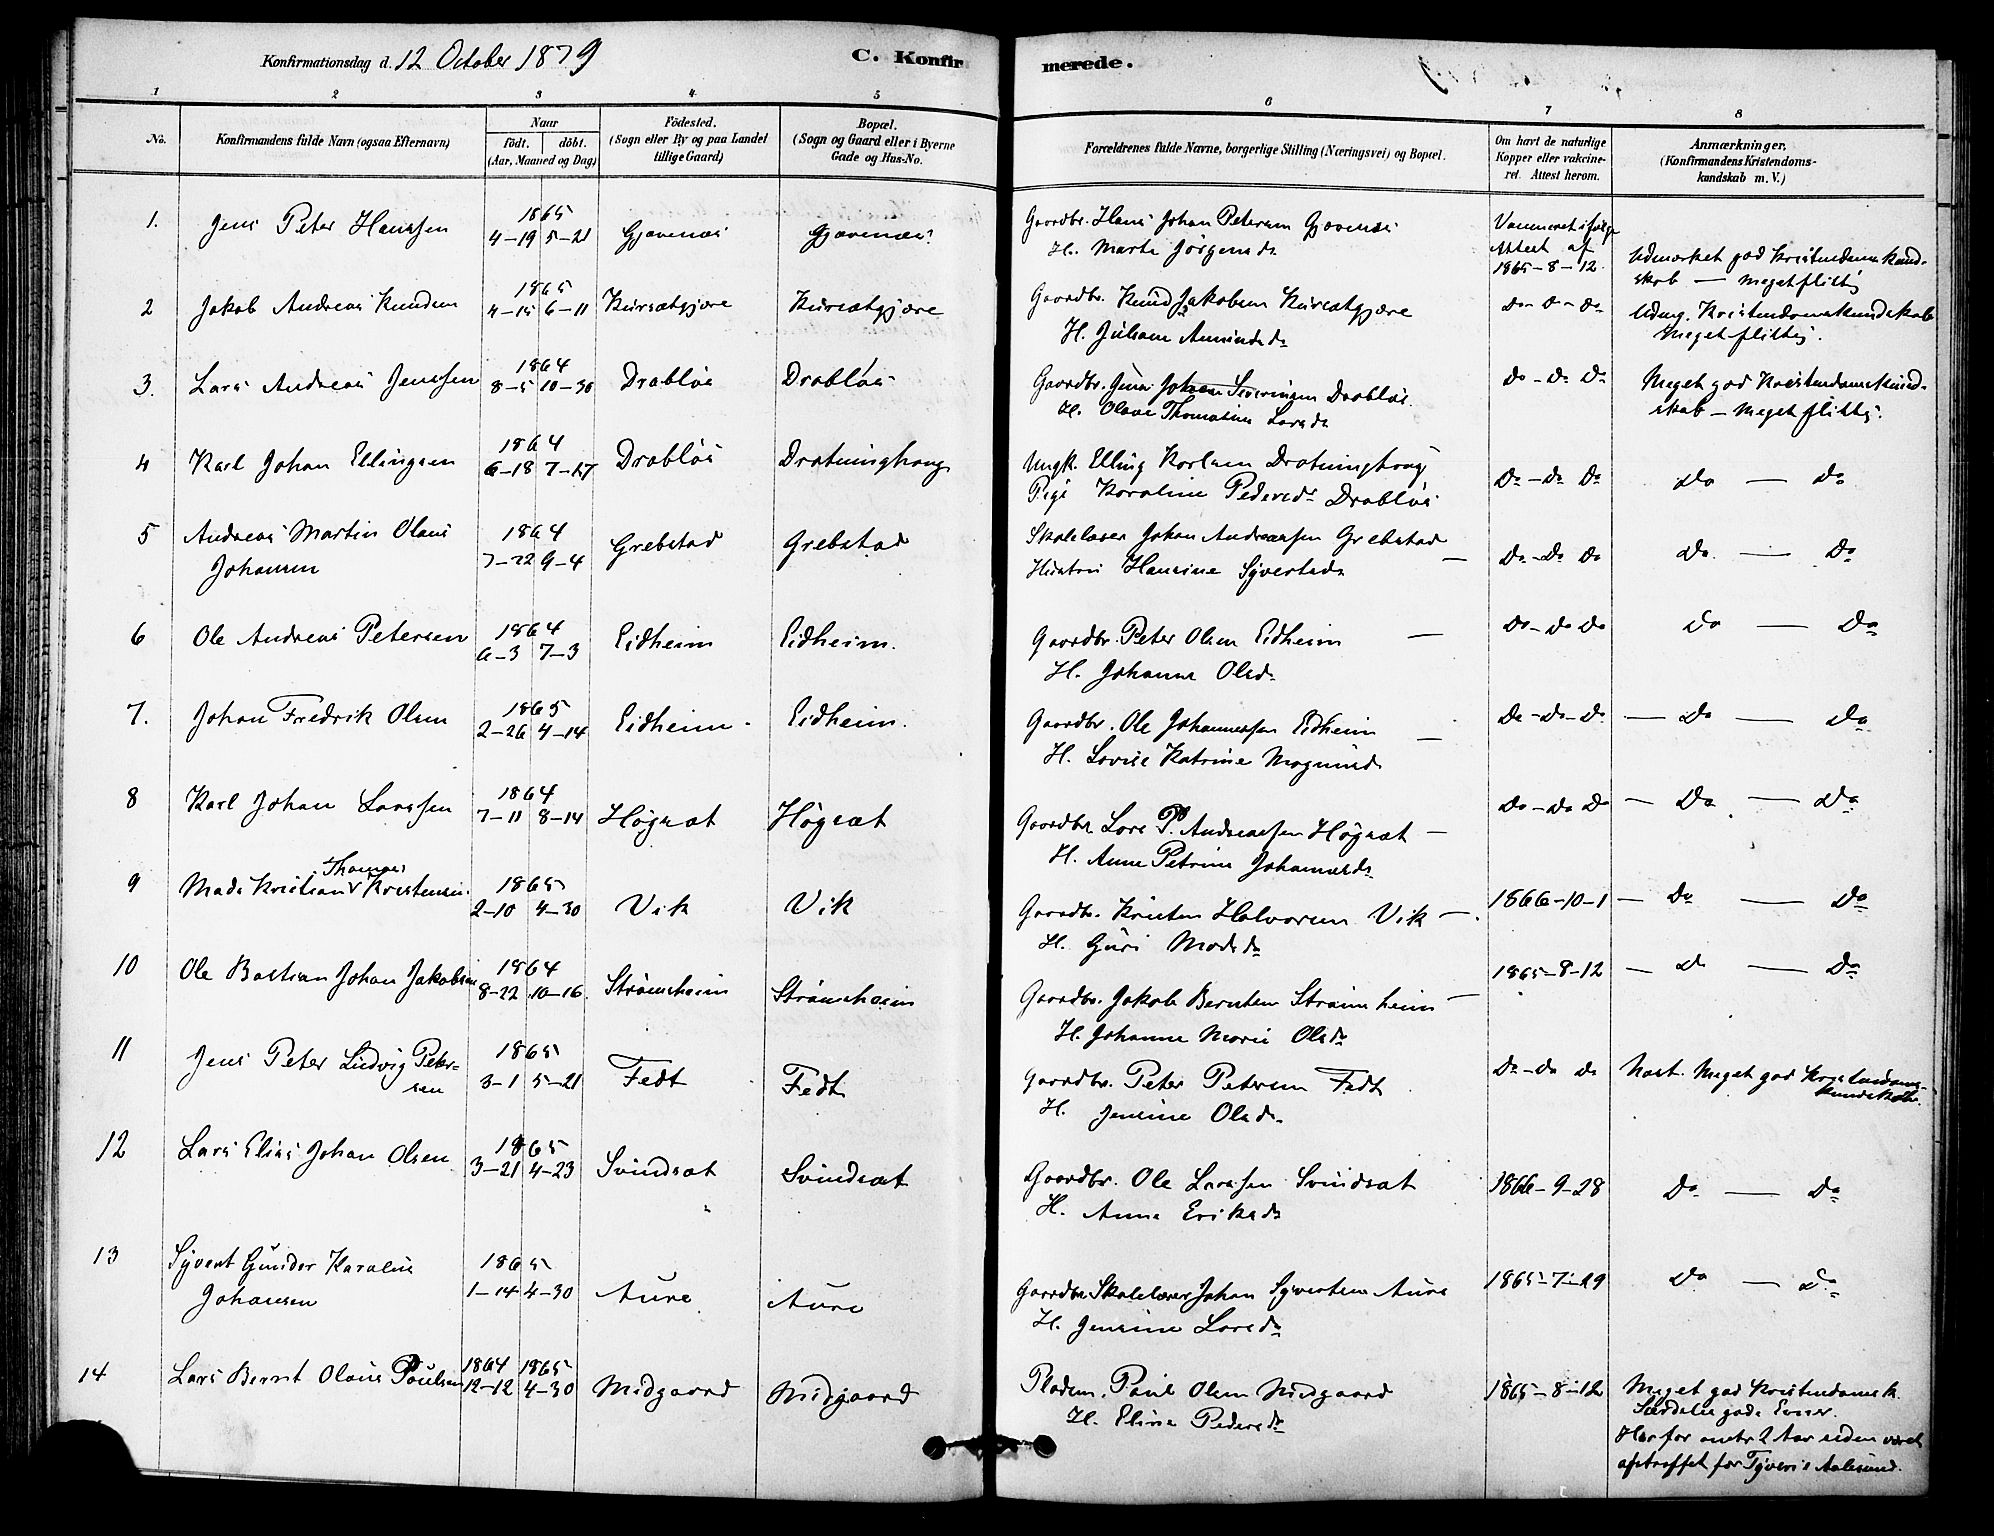 Konfirmationsdag d. 12 October 1879
C. Konfirmerede.
1 2 3 4 5 6 7 8
No.
Konfirmandens fulde Navn (ogsaa Efternavn)
Naar
födt. döbt.
(Aar, Maaned og Dag)
Födested.
(Sogn eller By og paa Landet
tillige Gaard)
Bopæl.
(Sogn og Gaard eller i Byerne
Gade og Hus-No.
Forældrenes fulde Navne, borgerlige Stilling (Næringsvei) og Bopæl.
Om havt de naturlige
Kopper eller vakcine-
ret. Attest herom.
Anmærkninger.
(Konfirmandens Kristendoms-
kundskab m. V.)
1. Jens Peter Hanssen 1865 4-19 5-21 Gjævenæs Gjævenæs
Gaardbr. Hans Johan Petersen Gjævenæs
H. Marte Jörgensd.
Attest af
1865-8-12
Udmærket god Kristendomskund-
skab — Meget flittig
2 Jakob Andreas Knudsen 1865 4-15 6-11 Kursætgjære Kursætgjære
Gaardbr. Knud Jakobsen Kursætgjære
H. Juliane Amundsd.
Do - Do - Do
Udm. Kristendomskundskab
Meget flittig.
3. Lars Andreas Jenssen 1864 8-5 10-30 Drabløs Drabløs
Gaardbr. Jens Johan Severinsen Drabløs.
H. Olave Thomasine Larsd.
Do - Do Do
Meget god Kristendomskund-
skab — Meget flittig.
4 Karl Johan Ellingsen 1864 6-18 7-17 Drabløs Dratninghaug
Ungk. Elling Karlsen Dratninghaug
Pige Karoline Pedersd. Drabløs
Do - Do Do
Do — Do
5 Andreas Martin Olaus
Johansen 1864 7-22 9-4 Grebstad Grebstad
Skolelærer Johan Andreassen Grebstad
Hustru Hansine Syvertsd. —
Do - Do Do
Do — Do
6 Ole Andreas Petersen 1864 6-3 7-3 Eidheim Eidheim.
Gaardbr. Peter Olsen Eidheim —
H. Johanne Olsd.
Do - Do Do
Do — Do
7. Johan Fredrik Olsen 1865 2-26 4-14 Eidheim Eidheim.
Gaardbr. Ole Johannessen Eidheim —
H. Lovise Katrine Mogensd.
Do - Do - Do
— Do — Do
8 Karl Johan Larssen 1864 7-11 8-14 Høgsæt Høgsæt
Gaardbr. Lars P. Andreassen Høgsæt —
H. Anne Petrine Johannesd.
Do - Do Do
— Do — Do
9 Thomas
Mads Kristian V Kristensen 1865 2-10 4-30 Vik Vik
Gaardbr. Kristen Halvorsen Vik —
H. Guri Madsd.
1866-10-1
— Do — Do
10 Ole Bastian Johan Jakobsen 1864 8-22 10-16 Strömsheim Strömsheim
Gaardbr. Jakob Berntsen Strömsheim —
H. Johanne Marie Olsd.
1865-8-12
— Do — Do
11 Jens Peter Ludvig Peter-
sen 1865 3-1 5-21 Fedt Fedt
Gaardbr. Peter Petersen Fedt
H. Jensine Olsd.
Do - Do Do
Næst. Meget god Kristendoms-
kundskab.
12 Lars Elias Johan Olsen 1865 3-21 4-23 Svindsæt Svindsæt
Gaardbr. Ole Larssen Svindsæt
H. Anna Eriksd.
1866-9-28
Do — Do
13 Syvert Gunder Karolius
Johansen 1865 1-14 4-30 Aure Aure
Gaardbr. Skolelærer Johan Syvertsen Aure
H. Jensine Larsd.
1865-7-29
Do — Do
14 Lars Bernt Olaus Paulsen 1864 12-12 1865 4-30 Midgaard Midgaard
Pladsm. Paul Olsen Midgaard
H. Eline Pedersd.
1865-8-12
Meget god Kristendomsk.
Særdeles gode Evner.
Har for omtr 2 Aar siden været
afstraffet for Tyveri i Aalesund.